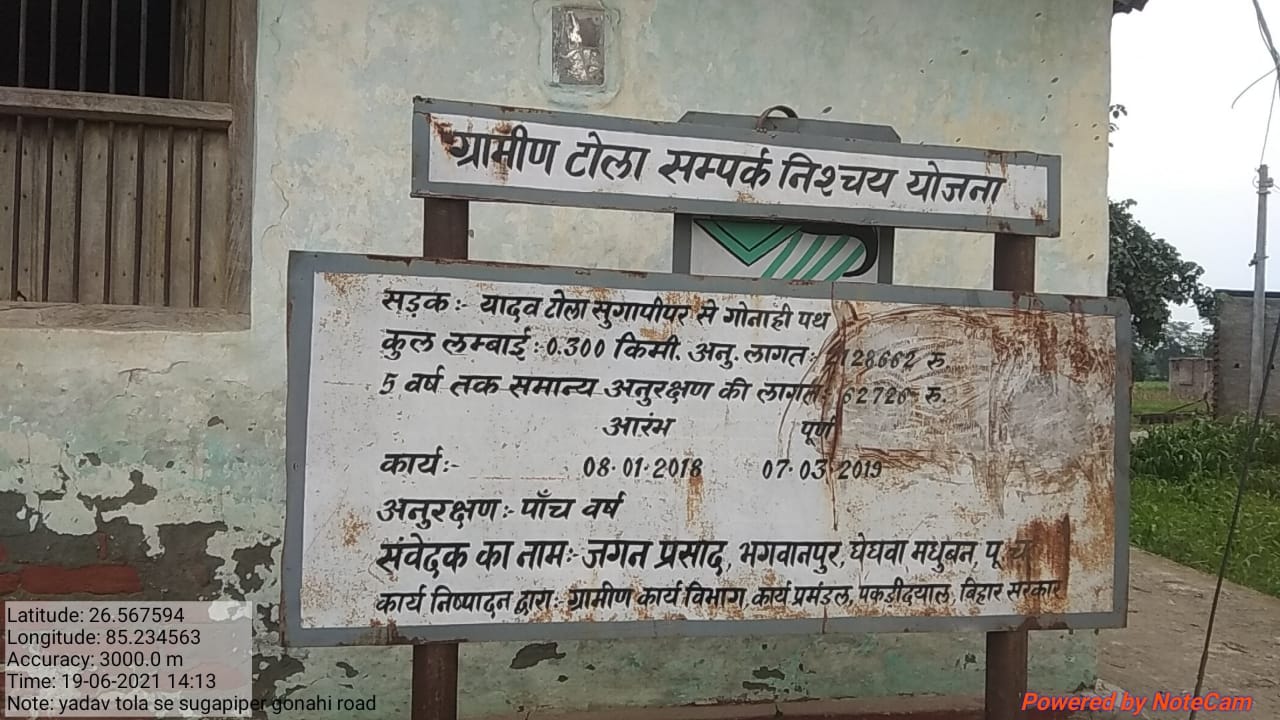 ग्रामीण टोला सम्पर्क निश्चय योजना
सड़क:- यादव टोला सुगापीपर से गोनाही पथ
कुल लम्बाई:- 0.300 किमी. अनु. लागत:- 128662 रु.
5 वर्ष तक समान्य अनुरक्षण की लागत:- 62726 रु.
आरंभ पूर्ण
कार्य:- 08.01.2018 07.03.2019
अनुरक्षण:- पाँच वर्ष
संवेदक का नाम:- जगन प्रसाद, भगवानपुर, घेघवा मधुबन, पू.च
कार्य निष्पादन द्वारा:- ग्रामीण कार्य विभाग, कार्य प्रमंडल, पकड़ीदयाल, बिहार सरकार
Latitude: 26.567594
Longitude: 85.234563
Accuracy: 3000.0 m
Time: 19-06-2021 14:13
Note: yadav tola se sugapiper gonahi road
Powered by NoteCam